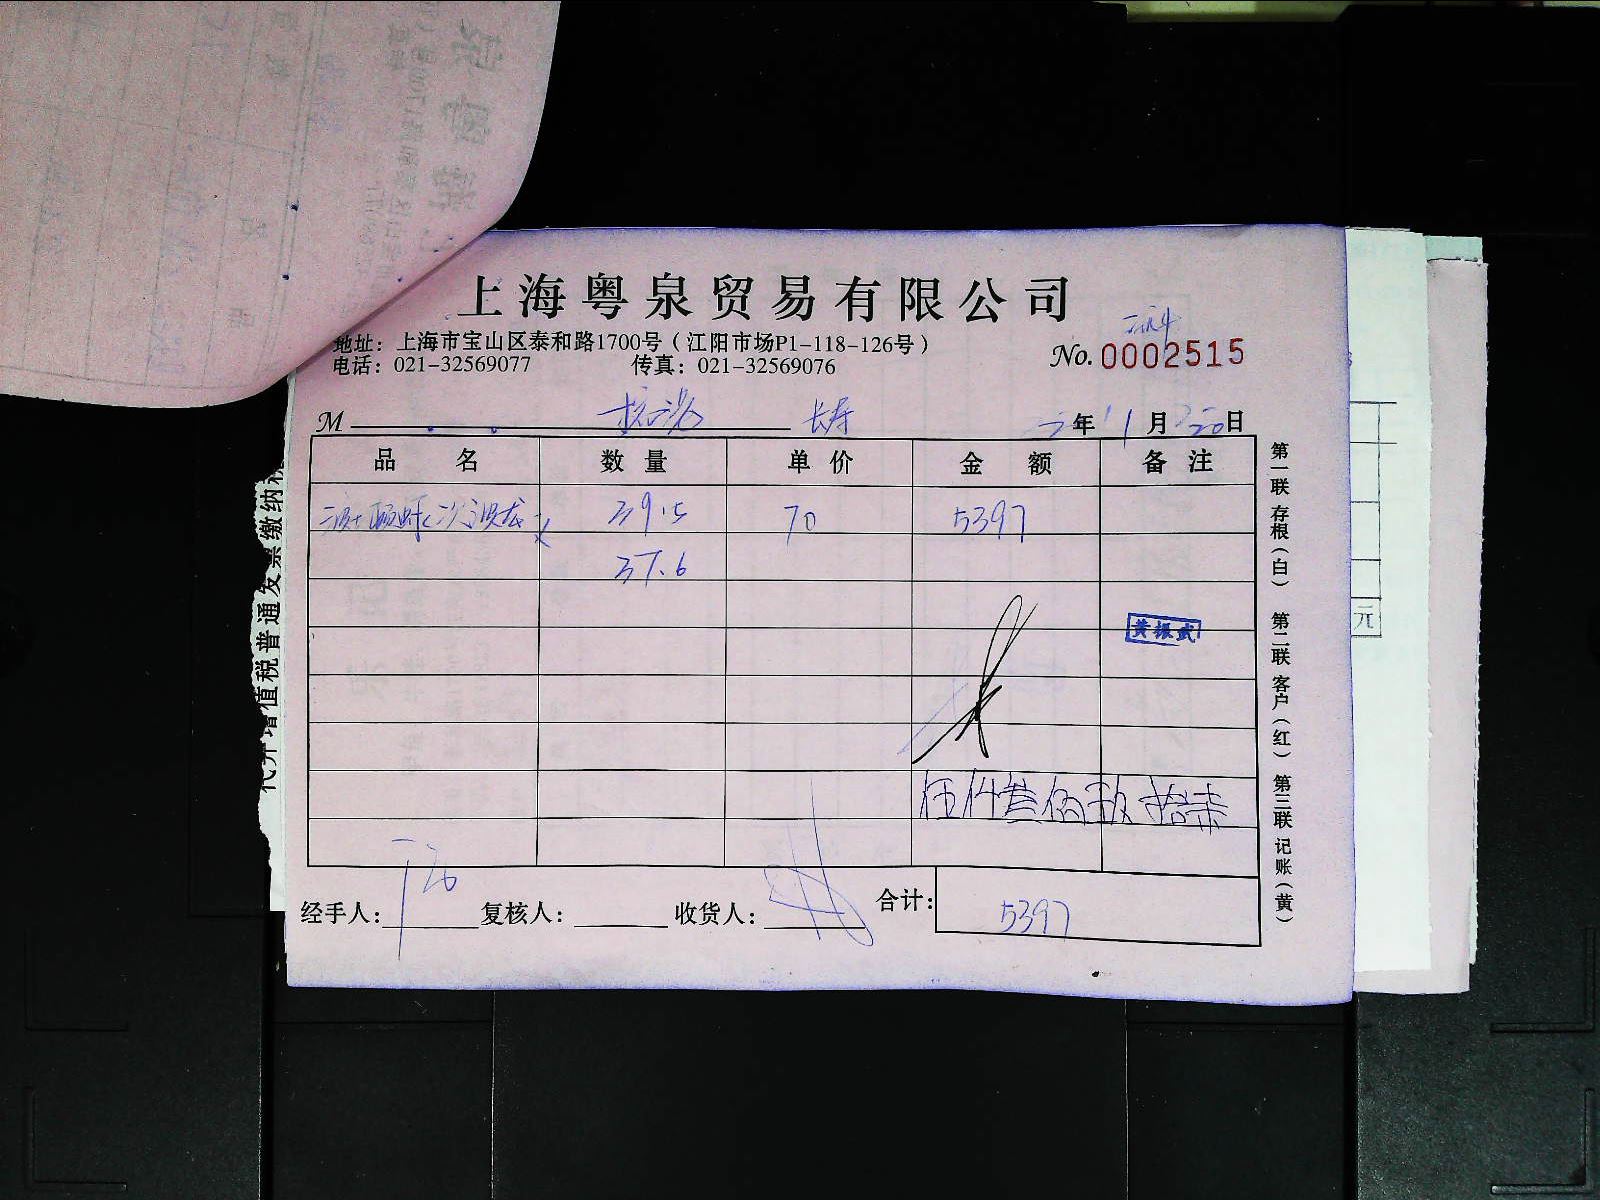 上海粤泉贸易有限公司
地址：上海市宝山区泰和路1700号（江阳市场P1-118-126号）
电话：021-32569077 传真：021-32569076
No. 0002515
M 长寿 年 11 月 日
品名 数量 单价 金额 备注
39.5 70 5397
37.6
黄振武
伍仟叁佰玖拾柒
经手人： 复核人： 收货人： 合计： 5397
第一联 存根（白） 第二联 客户（红） 第三联 记账（黄）
代开增值税普通发票缴纳税
元